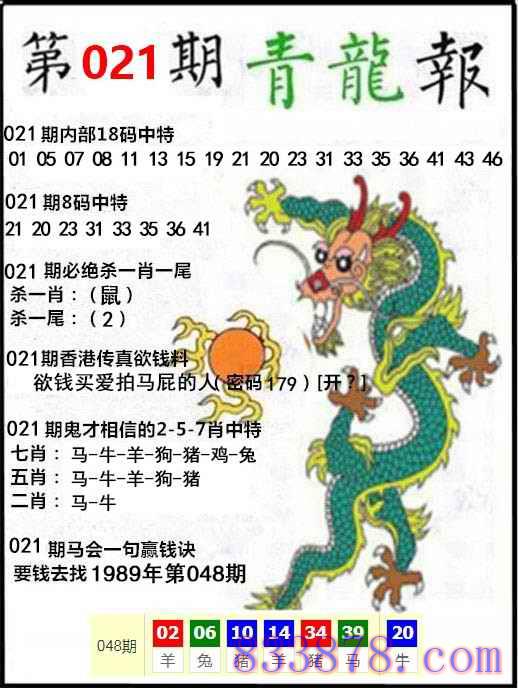 第021期青龍報
021期内部18码中特
01 05 07 08 11 13 15 19 21 20 23 31 33 35 36 41 43 46
021期8码中特
21 20 23 31 33 35 36 41
021 期必绝杀一肖一尾
杀一肖：（鼠）
杀一尾：（2）
021期香港传真欲钱料
欲钱买爱拍马屁的人(密码179)[开?]
021期鬼才相信的2-5-7肖中特
七肖：马-牛-羊-狗-猪-鸡-兔
五肖：马-牛-羊-狗-猪
二肖：马-牛
021 期马会一句赢钱诀
要钱去找1989年第048期
048期 02 06 10 14 34 39 20
羊 兔 猪 羊 猪 马 牛
833878.com